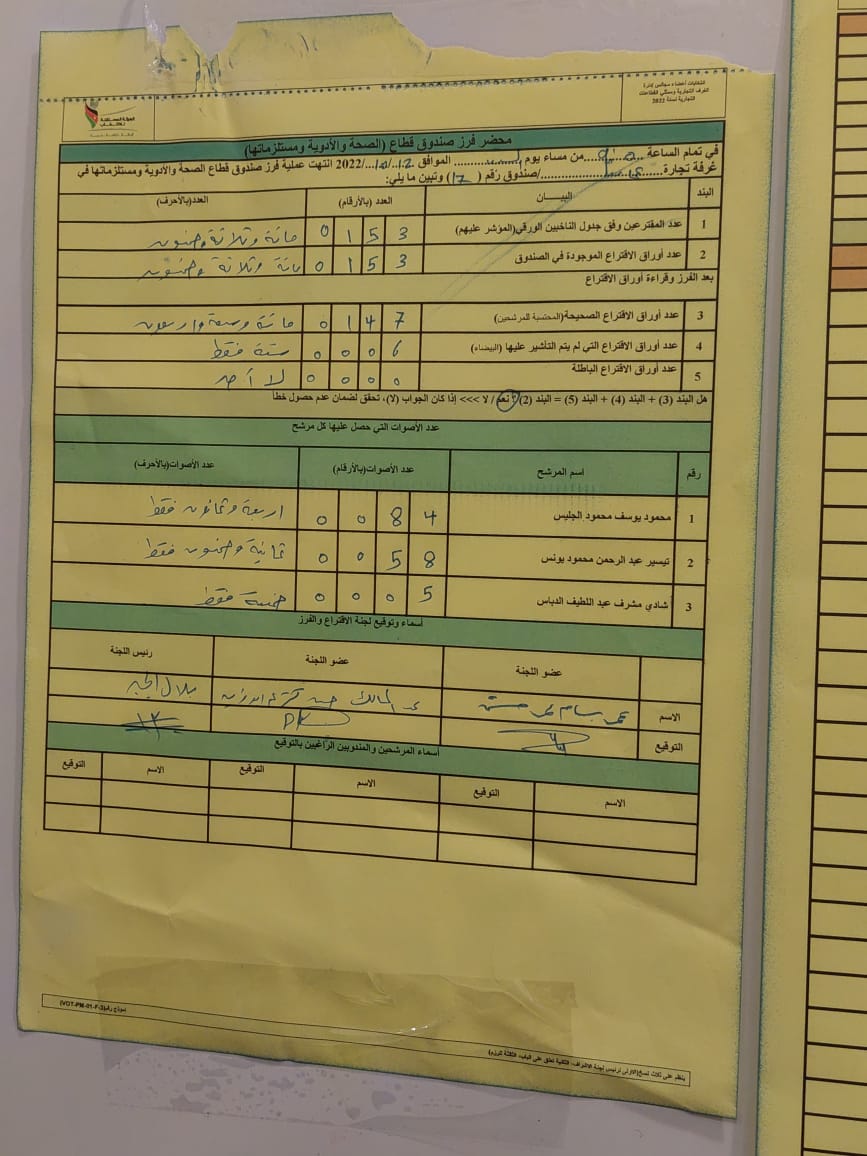 انتخابات أعضاء مجالس إدارة
الغرف التجارية وممثلي القطاعات
التجارية لسنة 2022
محضر فرز صندوق قطاع (الصحة والأدوية ومستلزماتها)
في تمام الساعة ... من مساء يوم ... الموافق ١٢/.../2022 انتهت عملية فرز صندوق قطاع الصحة والأدوية ومستلزماتها في
غرفة تجارة ... /صندوق رقم (17) وتبين ما يلي:
البند البيـــــان العدد (بالأرقام) العدد(بالأحرف)
1 عدد المقترعين وفق جدول الناخبين الورقي(المؤشر عليهم) 0 1 5 3 مائة وثلاثة وخمسون
2 عدد أوراق الاقتراع الموجودة في الصندوق 0 1 5 3 مائة وثلاثة وخمسون
بعد الفرز وقراءة أوراق الاقتراع
3 عدد أوراق الاقتراع الصحيحة(المحتسبة للمرشحين) 0 1 4 7 مائة وسبعة واربعون
4 عدد أوراق الاقتراع التي لم يتم التأشير عليها (البيضاء) 0 0 0 6 ستة فقط
5 عدد أوراق الاقتراع الباطلة 0 0 0 0 لا أحد
هل البند (3) + البند (4) + البند (5) = البند (2)؟ نعم / لا >>> إذا كان الجواب (لا)، تحقق لضمان عدم حصول خطأ
عدد الأصوات التي حصل عليها كل مرشح
رقم اسم المرشح عدد الأصوات(بالأرقام) عدد الأصوات(بالأحرف)
1 محمود يوسف محمود الجليس 0 0 8 4 اربعة وثمانون فقط
2 تيسير عبد الرحمن محمود يونس 0 0 5 8 ثمانية وخمسون فقط
3 شادي مشرف عبد اللطيف الدباس 0 0 0 5 خمسة فقط
أسماء وتوقيع لجنة الاقتراع والفرز
عضو اللجنة عضو اللجنة رئيس اللجنة
الاسم
التوقيع
أسماء المرشحين والمندوبين الراغبين بالتوقيع
الاسم التوقيع الاسم التوقيع الاسم التوقيع
نموذج رقم(VOT-PM-01-F-3)
ينظم على ثلاث نسخ(الأولى لرئيس لجنة الاشراف، الثانية تعلق على الباب، الثالثة للرزم)